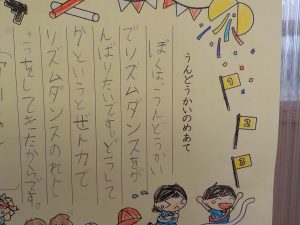 うんどうかいのめあて
ぼくは、うんどうかい
でリズムダンスをが
んばりたいです。どうして
かというとぜん力で
リズムダンスのれんし
ゅうをしてきたからです。
1
2
3